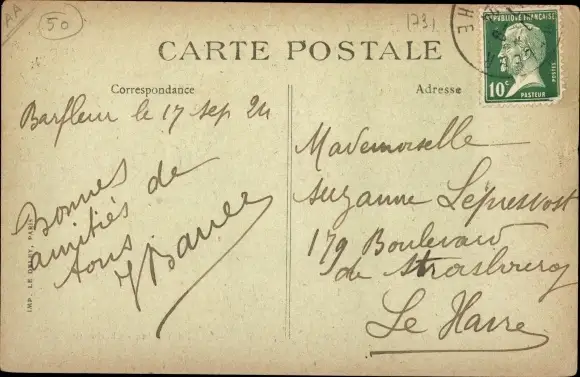 AA
50
1731
CARTE POSTALE
Correspondance
Adresse
RÉPUBLIQUE FRANÇAISE
10c
POSTES
PASTEUR
HE
Barfleur le 17 sep 24
Bonnes
amitiés de
tous
Mademoiselle
Suzanne Leprevost
179 Boulevard
de Strasbourg
Le Havre
IMP. LE DELEY, PARIS